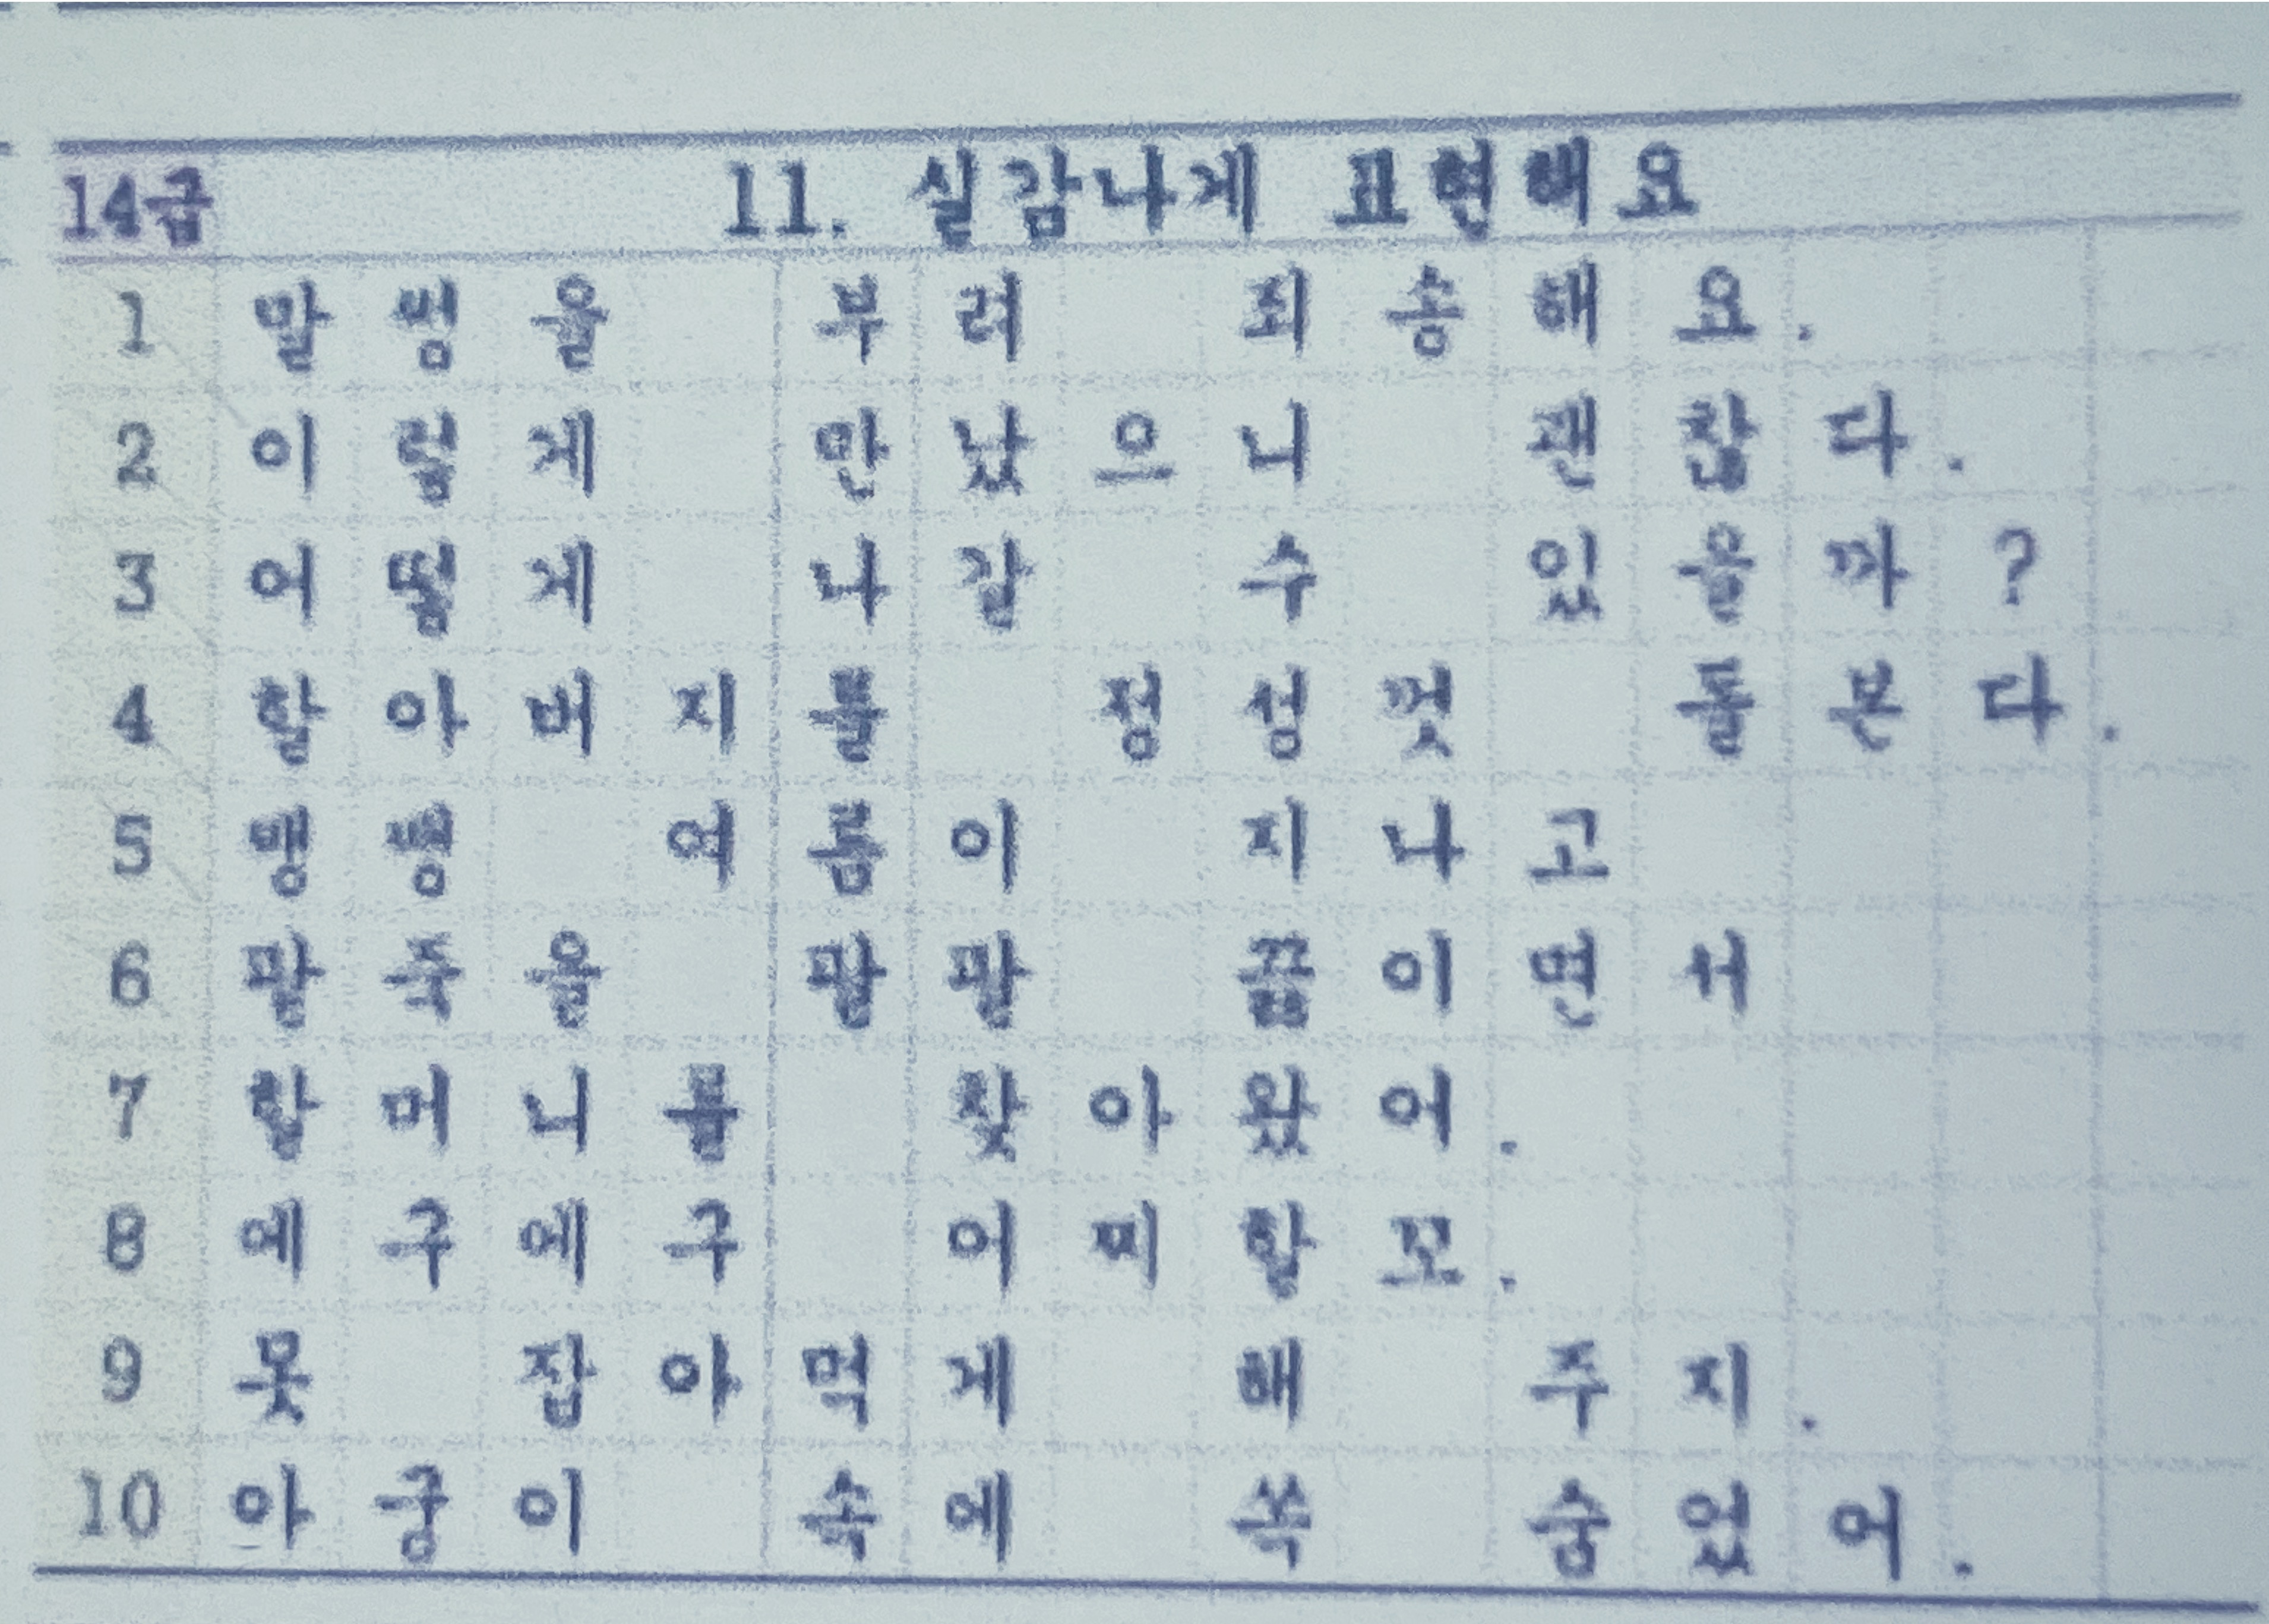 14급 11. 실감나게 표현해요
1 말썽을 부려 죄송해요.
2 이렇게 만났으니 괜찮다.
3 어떻게 나갈 수 있을까?
4 할아버지를 정성껏 돌본다.
5 땡땡 여름이 지나고
6 팥죽을 팔팔 끓이면서
7 할머니를 찾아왔어.
8 에구에구 어찌할꼬.
9 못 잡아먹게 해 주지.
10 아궁이 속에 쏙 숨었어.